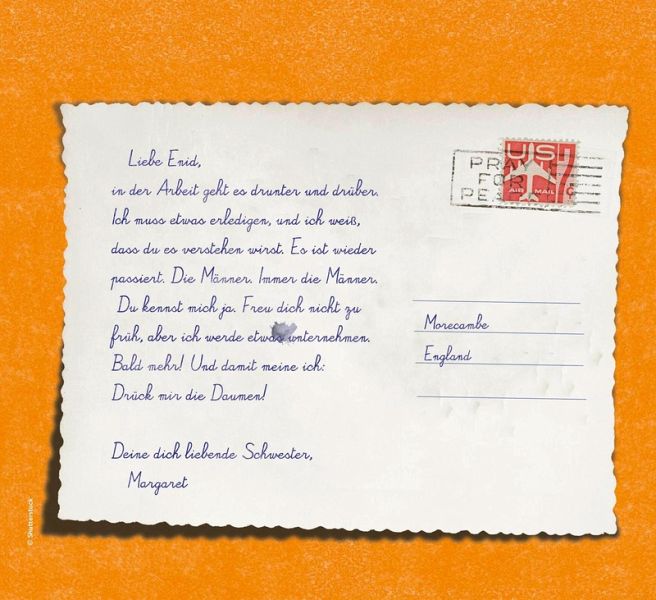 Liebe Enid,
in der Arbeit geht es drunter und drüber.
Ich muss etwas erledigen, und ich weiß,
dass du es verstehen wirst. Es ist wieder
passiert. Die Männer. Immer die Männer.
Du kennst mich ja. Freu dich nicht zu
früh, aber ich werde etwas unternehmen.
Bald mehr! Und damit meine ich:
Drück mir die Daumen!
Deine dich liebende Schwester,
Margaret
US
7
AIR MAIL
PRAY
FOR
Morecambe
England
© Shutterstock